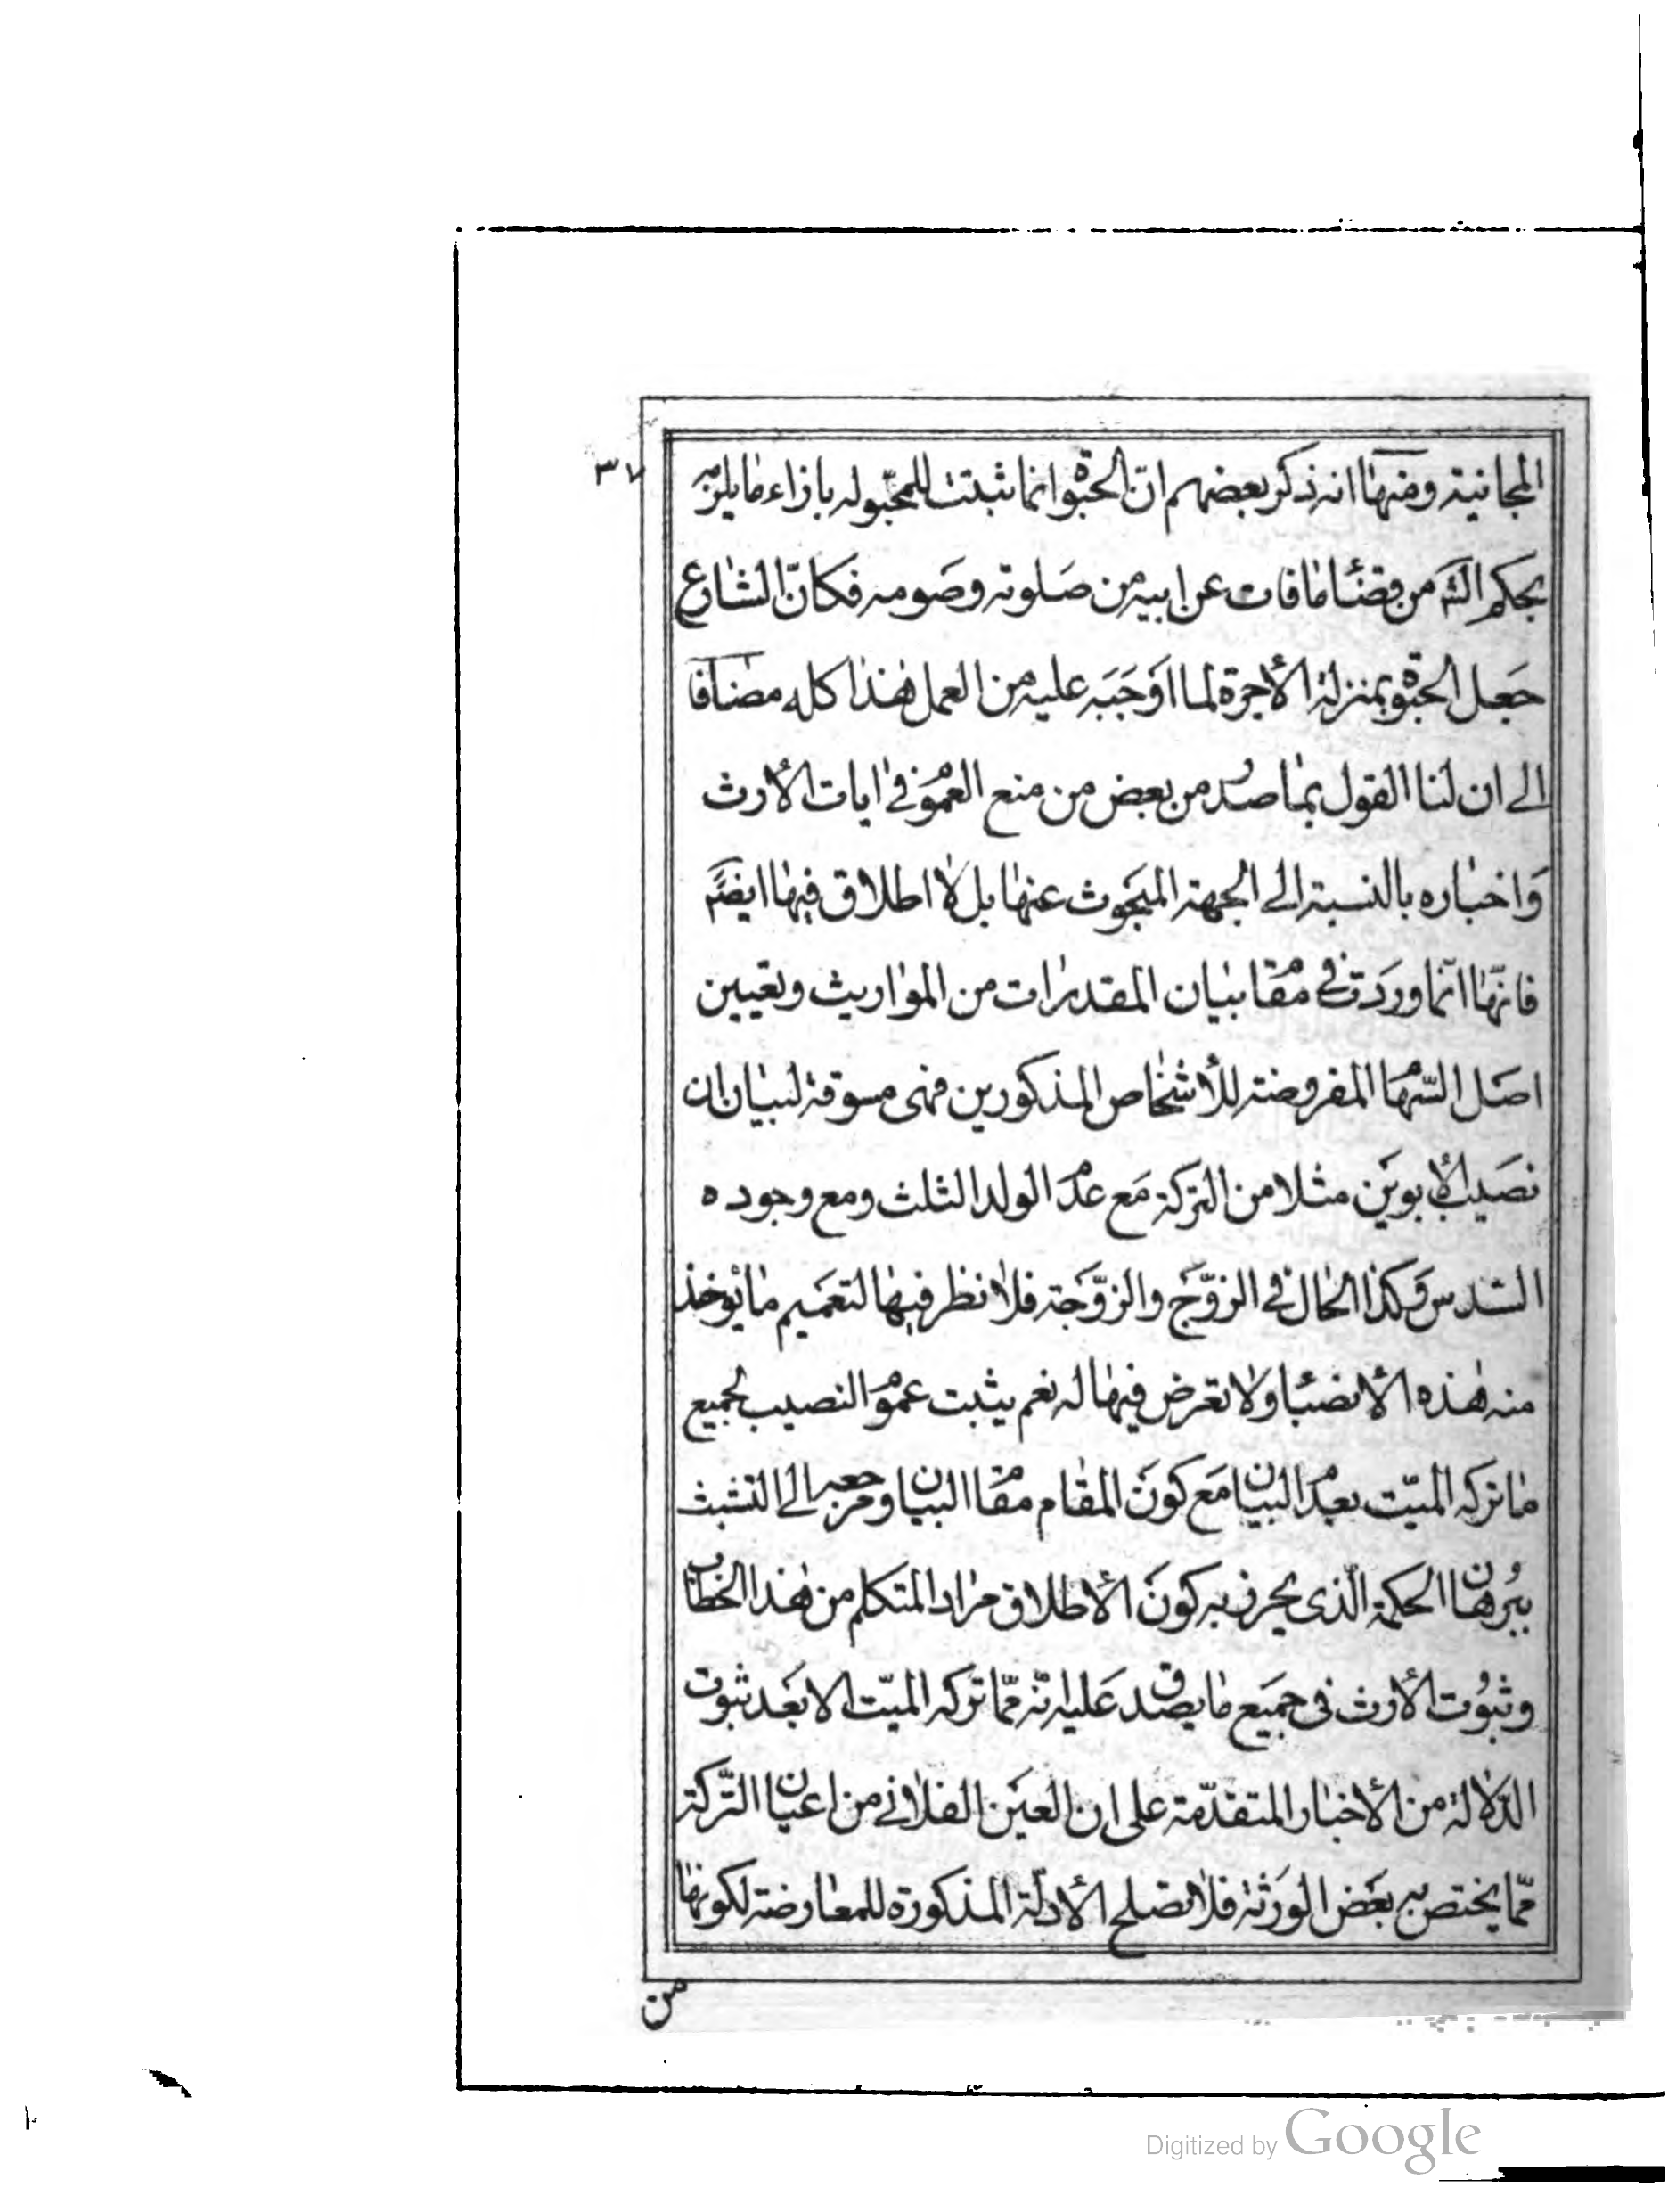 ٣٧
المجانية ومنها انه ذكر بعضهم انّ الحبوة انما ثبتت للمحبّو له بازاء ما يلزمه
بحكم الشّرع من قضاء ما فات عن ابيه من صلوته وصومه فكانّ الشارع
جعل الحبوة بمنزلة الأجرة لما اوجبه عليه من العمل هذا كله مضافا
الى ان لنا القول بما صدر من بعض من منع العموم في ايات الأرث
واخباره بالنسبة الى الجهة المبحوث عنها بل لا اطلاق فيها ايضًا
فانّها انّما وردت في مقام بيان المقدرات من المواريث وتعيين
اصل السّهام المفروضة للأشخاص المذكورين فهى مسوقة لبيان ان
نصيب الأبوين مثلا من التركة مع عدم الولد الثلث ومع وجوده
السّدس وكذا الحال في الزّوج والزّوجة فلا نظر فيها لتعميم ما يؤخذ
منه هذه الأنصباء ولا تعرض فيها له نعم يثبت عموم النصيب لجميع
ما تركه الميّت بعدم البيان مع كون المقام مقام البيان ومرجعه الى التشبث
ببرهان الحكمة الّذى يحرز به كون الأطلاق مراد المتكلم من هذا الخطاب
وثبوت الأرث في جميع ما يصدق عليه انّه ممّا تركه الميّت الا بعد ثبوت
الدّلالة من الأخبار المتقدّمة على ان العين الفلانى من اعيان التّركة
ممّا يختص به بعض الورثة فلا تصلح الأدلّة المذكورة للمعارضة لكونها
من
Digitized by Google